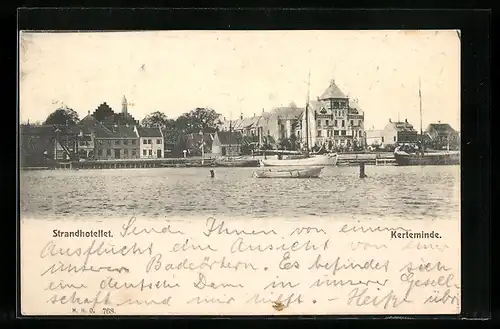 Strandhotellet.
Kerteminde.
Sende Ihnen von einem
Ausflucht die Ansicht von einer
unseren Badeörtern. Es befindet sich
eine deutsche Dame in unserer Gesell
schaft und mir
M. H. O. 768.